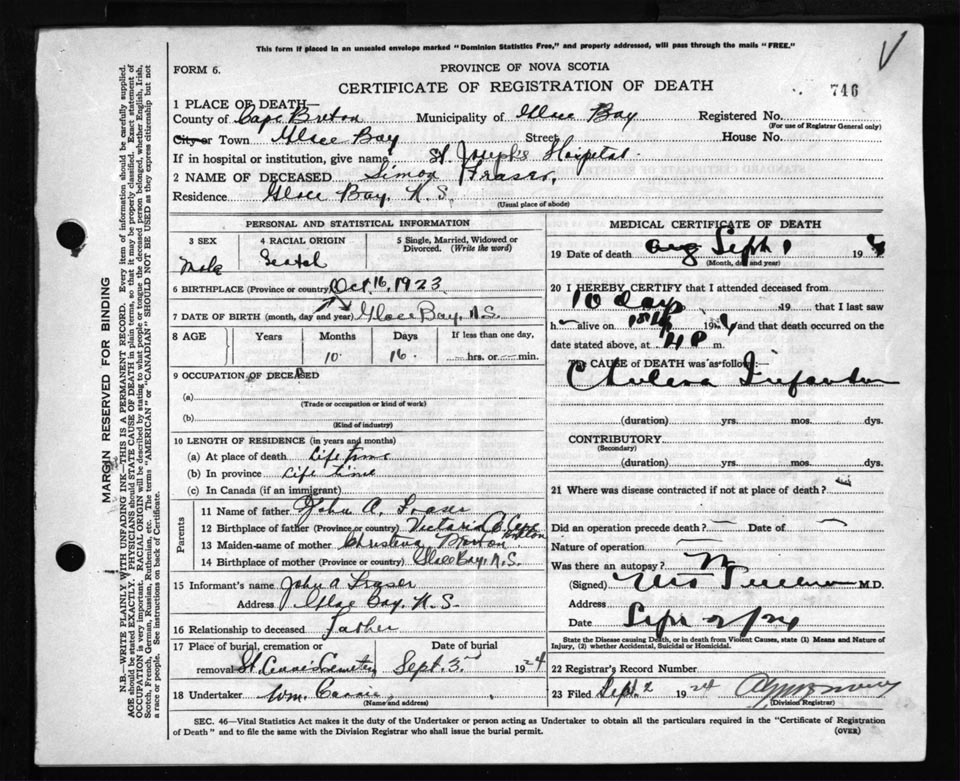 This form if placed in an unsealed envelope marked "Dominion Statistics Free," and properly addressed, will pass through the mails "FREE."
FORM 6.
PROVINCE OF NOVA SCOTIA
CERTIFICATE OF REGISTRATION OF DEATH
746
1 PLACE OF DEATH—
County of Cape Breton Municipality of Glace Bay Registered No.
(For use of Registrar General only)
City or Town Glace Bay Street House No.
If in hospital or institution, give name St. Joseph's Hospital
2 NAME OF DECEASED Simon Fraser,
Residence Glace Bay, N.S.
(Usual place of abode)
PERSONAL AND STATISTICAL INFORMATION
3 SEX 4 RACIAL ORIGIN 5 Single, Married, Widowed or Divorced. (Write the word)
Male Scotch
6 BIRTHPLACE (Province or country) Oct 16, 1923
7 DATE OF BIRTH (month, day and year) Glace Bay, N.S.
8 AGE Years Months Days If less than one day,
10 16 hrs. or min.
9 OCCUPATION OF DECEASED
(a)
(Trade or occupation or kind of work)
(b)
(Kind of industry)
10 LENGTH OF RESIDENCE (in years and months)
(a) At place of death Life time
(b) In province Life time
(c) In Canada (if an immigrant)
Parents
11 Name of father John A. Fraser
12 Birthplace of father (Province or country) Victoria Co. Cape Breton
13 Maiden name of mother Christina
14 Birthplace of mother (Province or country) Glace Bay, N.S.
15 Informant's name John A Fraser
Address Glace Bay, N.S.
16 Relationship to deceased Father
17 Place of burial, cremation or Date of burial
removal St. Cemetery Sept. 3rd 1924
18 Undertaker Wm.
(Name and address)
MEDICAL CERTIFICATE OF DEATH
19 Date of death Aug Sept 1 19
(Month, day and year)
20 I HEREBY CERTIFY that I attended deceased from
10 days 19 that I last saw
h alive on 19 and that death occurred on the
date stated above, at 4 P m.
The CAUSE of DEATH was as follows:—
Cholera Infantum
(duration) yrs. mos. dys.
CONTRIBUTORY
(Secondary)
(duration) yrs. mos. dys.
21 Where was disease contracted if not at place of death?
Did an operation precede death? — Date of —
Nature of operation —
Was there an autopsy?
(Signed) M.D.
Address
Date Sept 2/24
State the Disease causing Death, or in death from Violent Causes, state (1) Means and Nature of
Injury, (2) whether Accidental, Suicidal or Homicidal.
22 Registrar's Record Number
23 Filed Sept. 2 1924
(Division Registrar)
SEC. 46—Vital Statistics Act makes it the duty of the Undertaker or person acting as Undertaker to obtain all the particulars required in the "Certificate of Registration
of Death" and to file the same with the Division Registrar who shall issue the burial permit. (OVER)
MARGIN RESERVED FOR BINDING
N.B.—WRITE PLAINLY WITH UNFADING INK—THIS IS A PERMANENT RECORD. Every item of information should be carefully supplied.
AGE should be stated EXACTLY. PHYSICIANS should STATE CAUSE OF DEATH in plain terms, so that it may be properly classified. Exact statement of
OCCUPATION is very important. RACIAL ORIGIN will be described by stating to what people or tongue the deceased person belonged, whether English, Irish,
Scotch, French, German, Russian, Ruthenian, etc. The terms "AMERICAN" or "CANADIAN" SHOULD NOT BE USED as they express citizenship but not
a race or people. See instructions on back of Certificate.